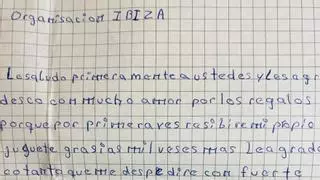 Organisacion IBIZA
Lesaludo primeramente a ustedes y les agra
desco con mucho amor por los regalos
porque por primera ves resibire mi propio
juguete grasias mil veses mas Le agrade
co tanto que me despedire con fuerte